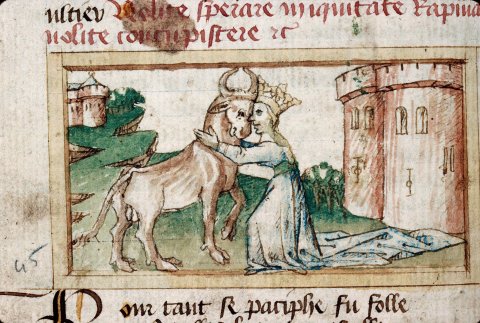 ustieu Nolite sperare iniquitate Rapina
nolite concupistere rc
45
Pour tant se paciphe fu folle